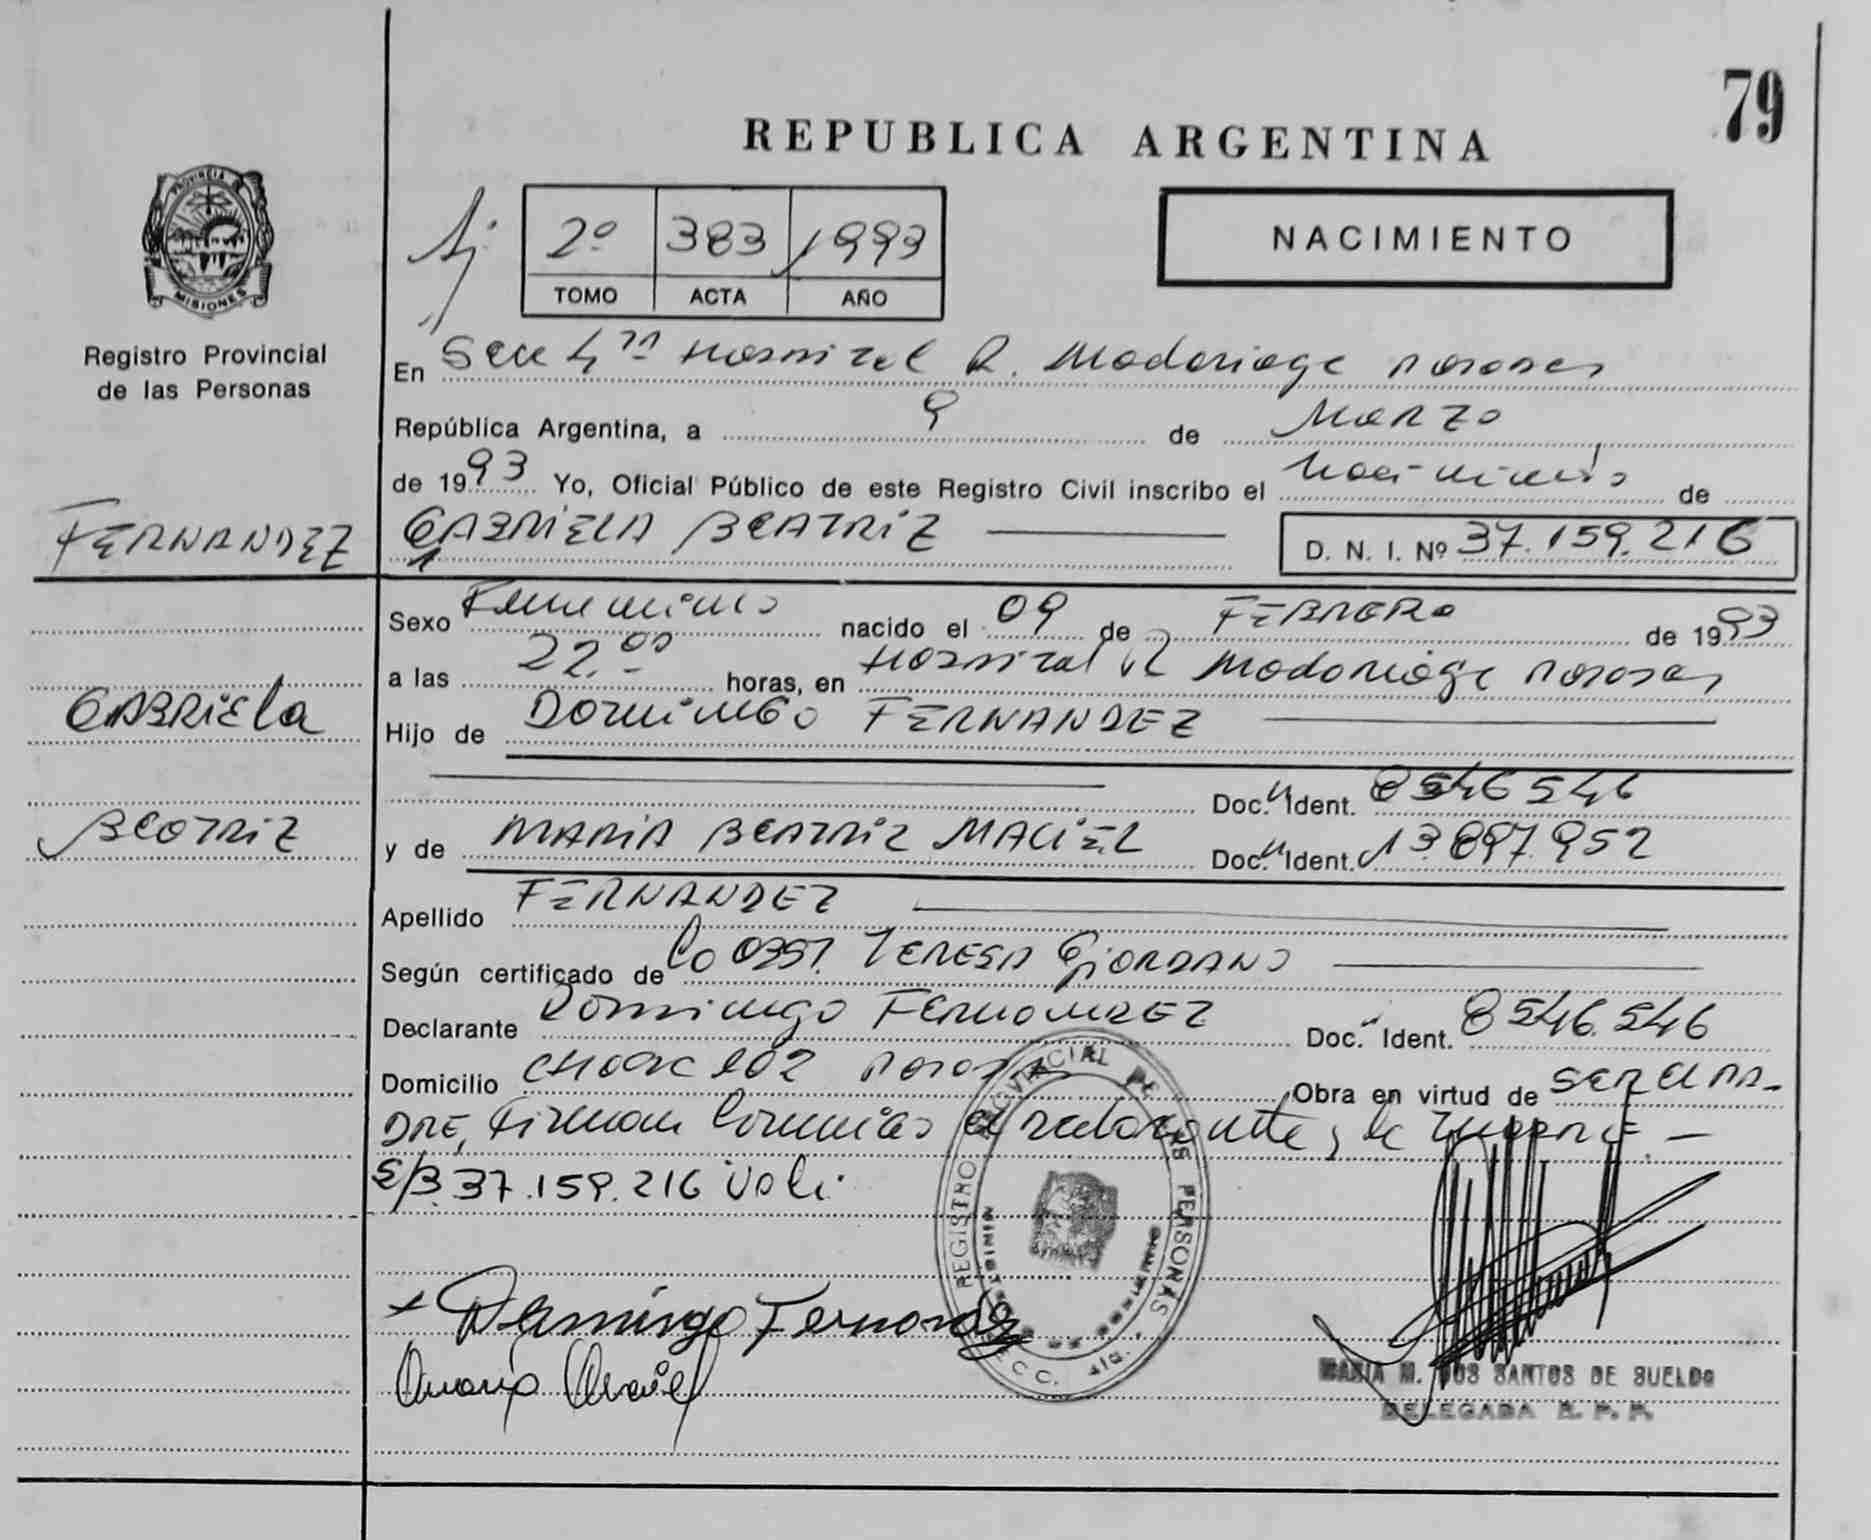 79
REPUBLICA ARGENTINA
PROVINCIA DE
MISIONES
Registro Provincial
de las Personas
2º 383 1993
TOMO ACTA AÑO
NACIMIENTO
En Secc 4ta Hospital R. Madariaga Posadas
República Argentina, a 9 de Marzo
de 1993 Yo, Oficial Público de este Registro Civil inscribo el nacimiento de
FERNANDEZ
GABRIELA BEATRIZ
D. N. I. Nº 37.159.216
Sexo Femenino nacido el 09 de FEBRERO de 1993
a las 22,00 horas, en Hospital R Madariaga Posadas
GABRIELA
Hijo de DOMINGO FERNANDEZ
Doc. Ident. 8546546
BEATRIZ
y de MARIA BEATRIZ MACIEL Doc. Ident. 13.897.952
Apellido FERNANDEZ
Según certificado de Co Obst. TERESA GIORDANO
Declarante Domingo FERNANDEZ Doc. Ident. 8546.546
Domicilio 102 Posadas Obra en virtud de SER EL PA-
DRE, Firman el declarante y la
S/B 37.159.216 Vale.
Domingo Fernandez
Maria Maciel
REGISTRO PROVINCIAL DE LAS PERSONAS
MARIA M. DOS SANTOS DE SUELDO
DELEGADA R. P. P.